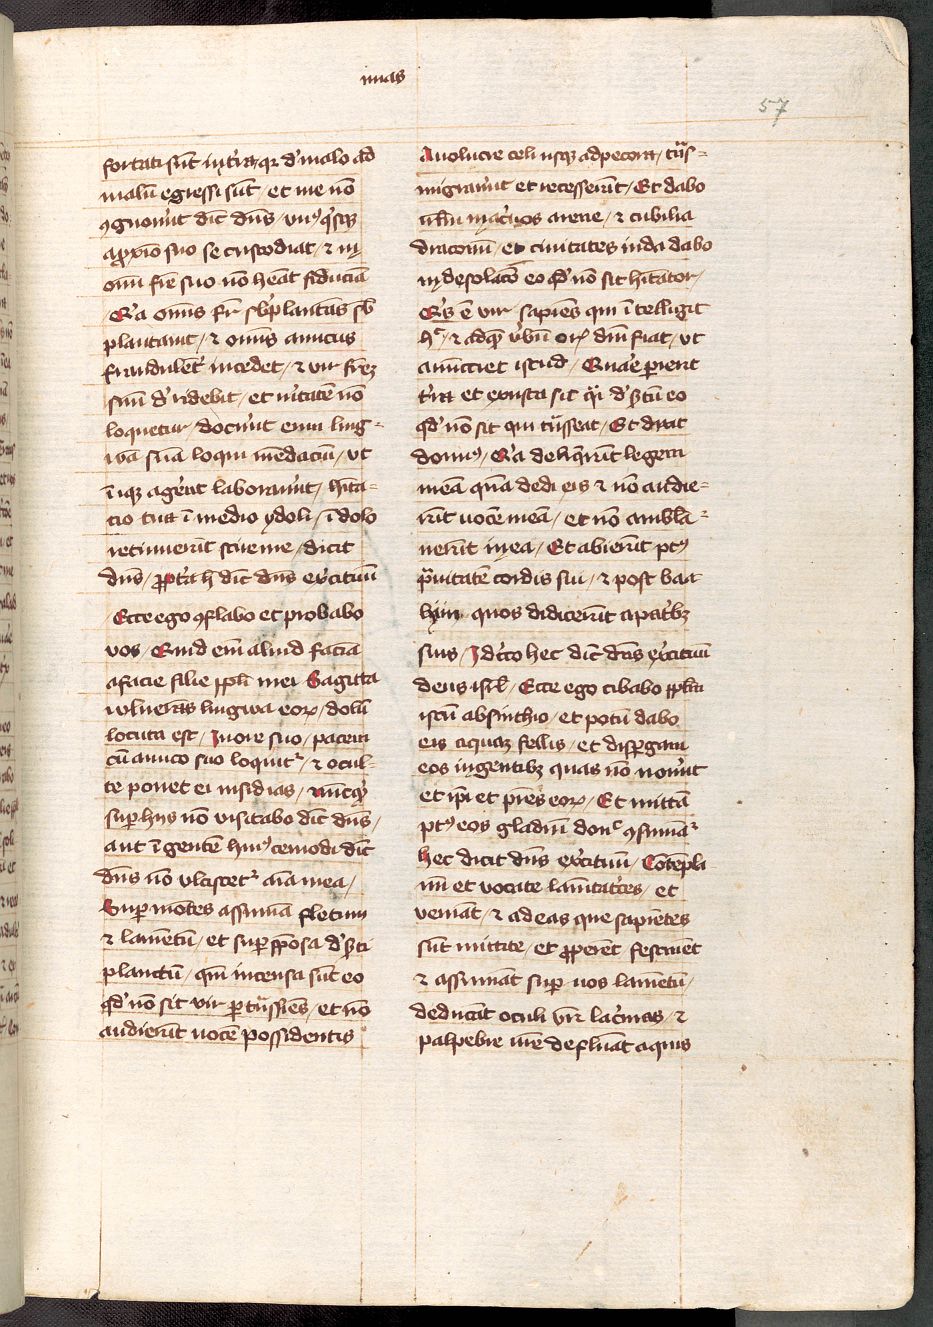 mias
57
fortati sūt in t̄ra qr de malo ad
malū egressi sūt / et me nō
ꝯgnoūnt dīc dn̄s vn9 qisqꝫ
a pxīo suo se custodiat / ⁊ in
om̄i fr̄e suo nō heāt fiduciā
Qia om̄s fr̄ sb̓plantās sb̓
plantauit / ⁊ om̄s amicus
fraudulent̓ incedet / ⁊ vir fr̄eꝫ
suū d̓ridebit / et v̓itatē nō
loquetur / docūnt enim ling=
wā suā loqui mēdaciū / vt
īiqꝫ agēnt laboraūnt / hīta=
cio tua ī medio ydoli / ī dolo
retinuerūt scire me / dicit
dn̄s / ꝓpt̓ia h̄ dīc dn̄s ex̓cituū
Ecce ego ꝯflabo et probabo
vos / Quid em̄ aliud faciā
a facie filie ppl̄i mei Sagitta
wlnerās lingwa eoꝝ / dolū
locuta est / In ore suo / pacem
cū amico suo loquit᷑ / ⁊ ocul=
te ponet ei insidias / nūqͥd
suꝑ hijs nō visitabo dīc dn̄s /
aut ī gentē hui9cemodi dīc
dn̄s nō vlciscet᷑ aīa mea /
Suꝑ mōtes assumā fletum
⁊ lamētū / et suꝑ spōsa d̓sͥti
planctū / qm̄ incensa sūt eo
qd̓ nō sit vir ꝑtͣssiēs / et nō
audierūt vocē possidentis
A volucre celi usqꝫ ad pecora / tͣs=
migraūnt et recesserūt / Et dabo
ihrl̄m in ac̓uos arene / ⁊ cubilia
draconū / et ciuitates iuda dabo
in desolac̄oē eo qd̓ nō sit hītator /
Qͥs ē vir sapiēs qui ītelligit
hͦ / ⁊ ad quē v̓bū oris dn̄i fiat / vt
annūciet istud / Quare perierit
t̓ra et exusta sit qͣi d̓sͥtū eo
qd̓ nō sit qui tͣsseat / Et dixit
domin9 / Qia deliq̓rūt legem
meā quā dedi eis ⁊ nō audie=
rūt uocē meā / et nō ambla=
uerūt in ea / Et abierūt pt9
pͣuitatē cordis sui / ⁊ post baa
lijm quos didicerūt a patʳibꝫ
suis / Idc̓co hec dīc dn̄s ex̓cituū
deus isrl̄ / Ecce ego cibabo ppl̄m
istū absinthio / et potū dabo
eis aquaꝫ fellis / et dispergam
eos in gentibꝫ quas nō noūnt
et ip̄i et pr̄es eoꝝ / Et mittā
pt9 eos gladiū donͨ ꝯsumāt᷑
Hec dicit dn̄s ex̓cituū / Cōtēpla
mī et vocate lamētatͥces / et
veniāt / ⁊ ad eas que sapiētes
sūt mittite / et ꝓperēt festinēt
⁊ assumāt suꝑ uos lamētū /
deducāt oculi vr̄i lacͥmas / ⁊
palpebre nr̄e defluāt aquis